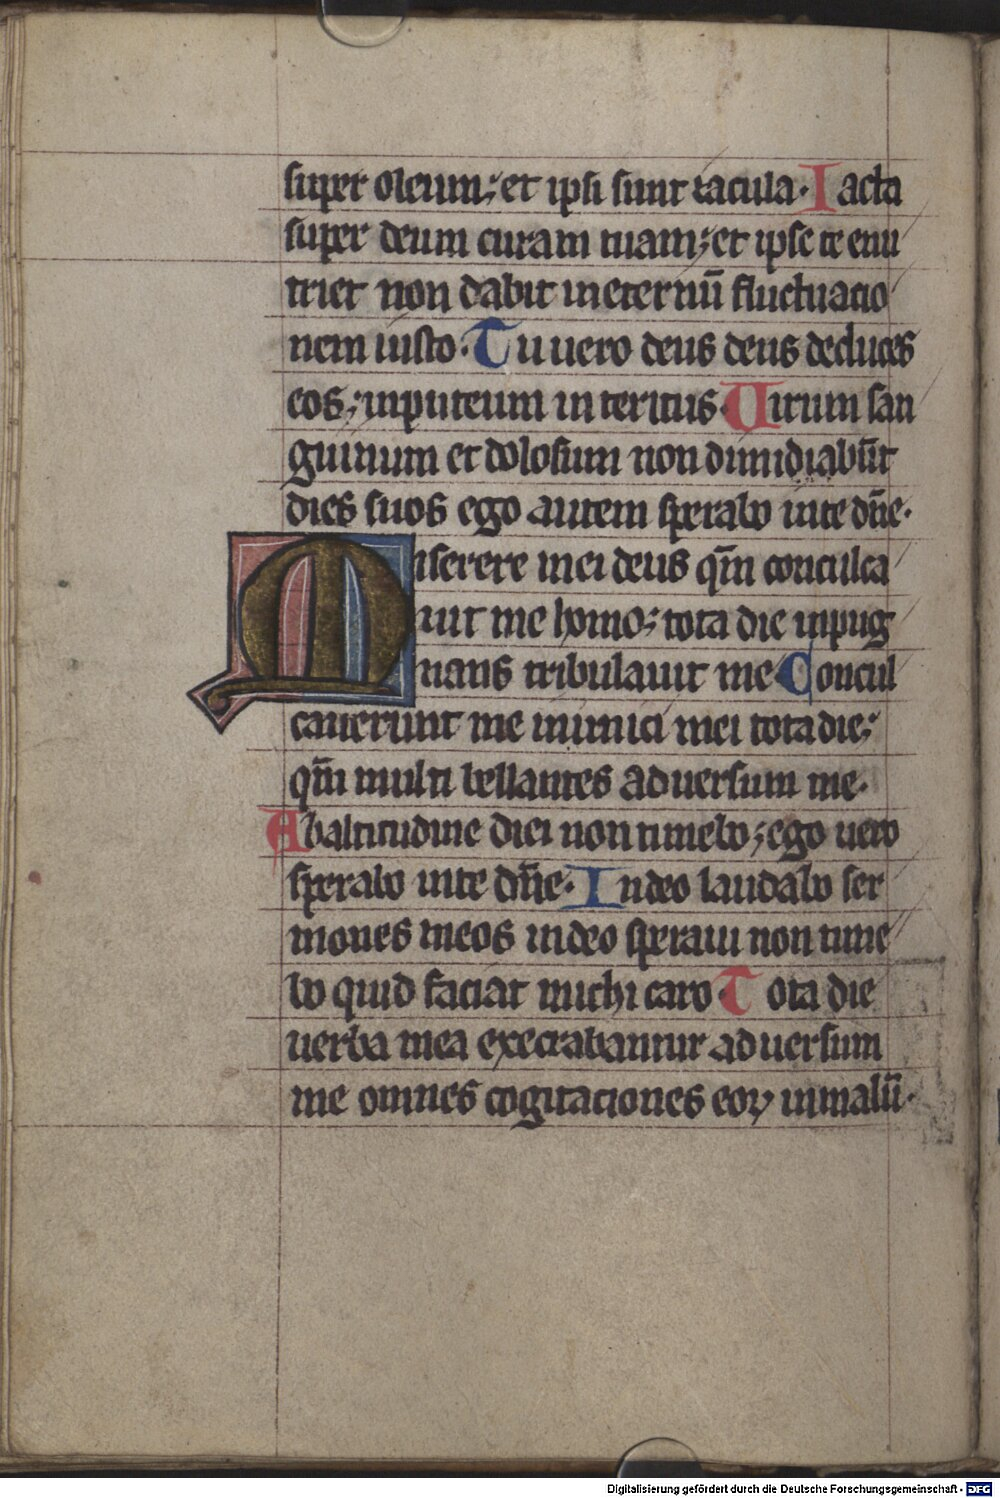 super oleum; et ipsi sunt iacula. Iacta
super deum curam tuam; et ipse te enu
triet non dabit in eternū fluctuatio
nem iusto. Tu uero deus deus deduces
eos; in puteum interitus. Uirum san
guinum et dolosum non dimidiabūt
dies suos ego autem sperabo in te dn̄e.
Miserere mei deus qm̄ conculca
uit me homo; tota die inpug
nans tribulauit me. Concul
cauerunt me inimici mei tota die;
qm̄ multi bellantes aduersum me.
Ab altitudine diei non timebo; ego uero
sperabo in te dn̄e. In deo laudabo ser
mones meos in deo speraui non time
bo quid faciat michi caro. Tota die
uerba mea execrabantur aduersum
me omnes cogitationes eoꝝ in malū.
Digitalisierung gefördert durch die Deutsche Forschungsgemeinschaft - DFG